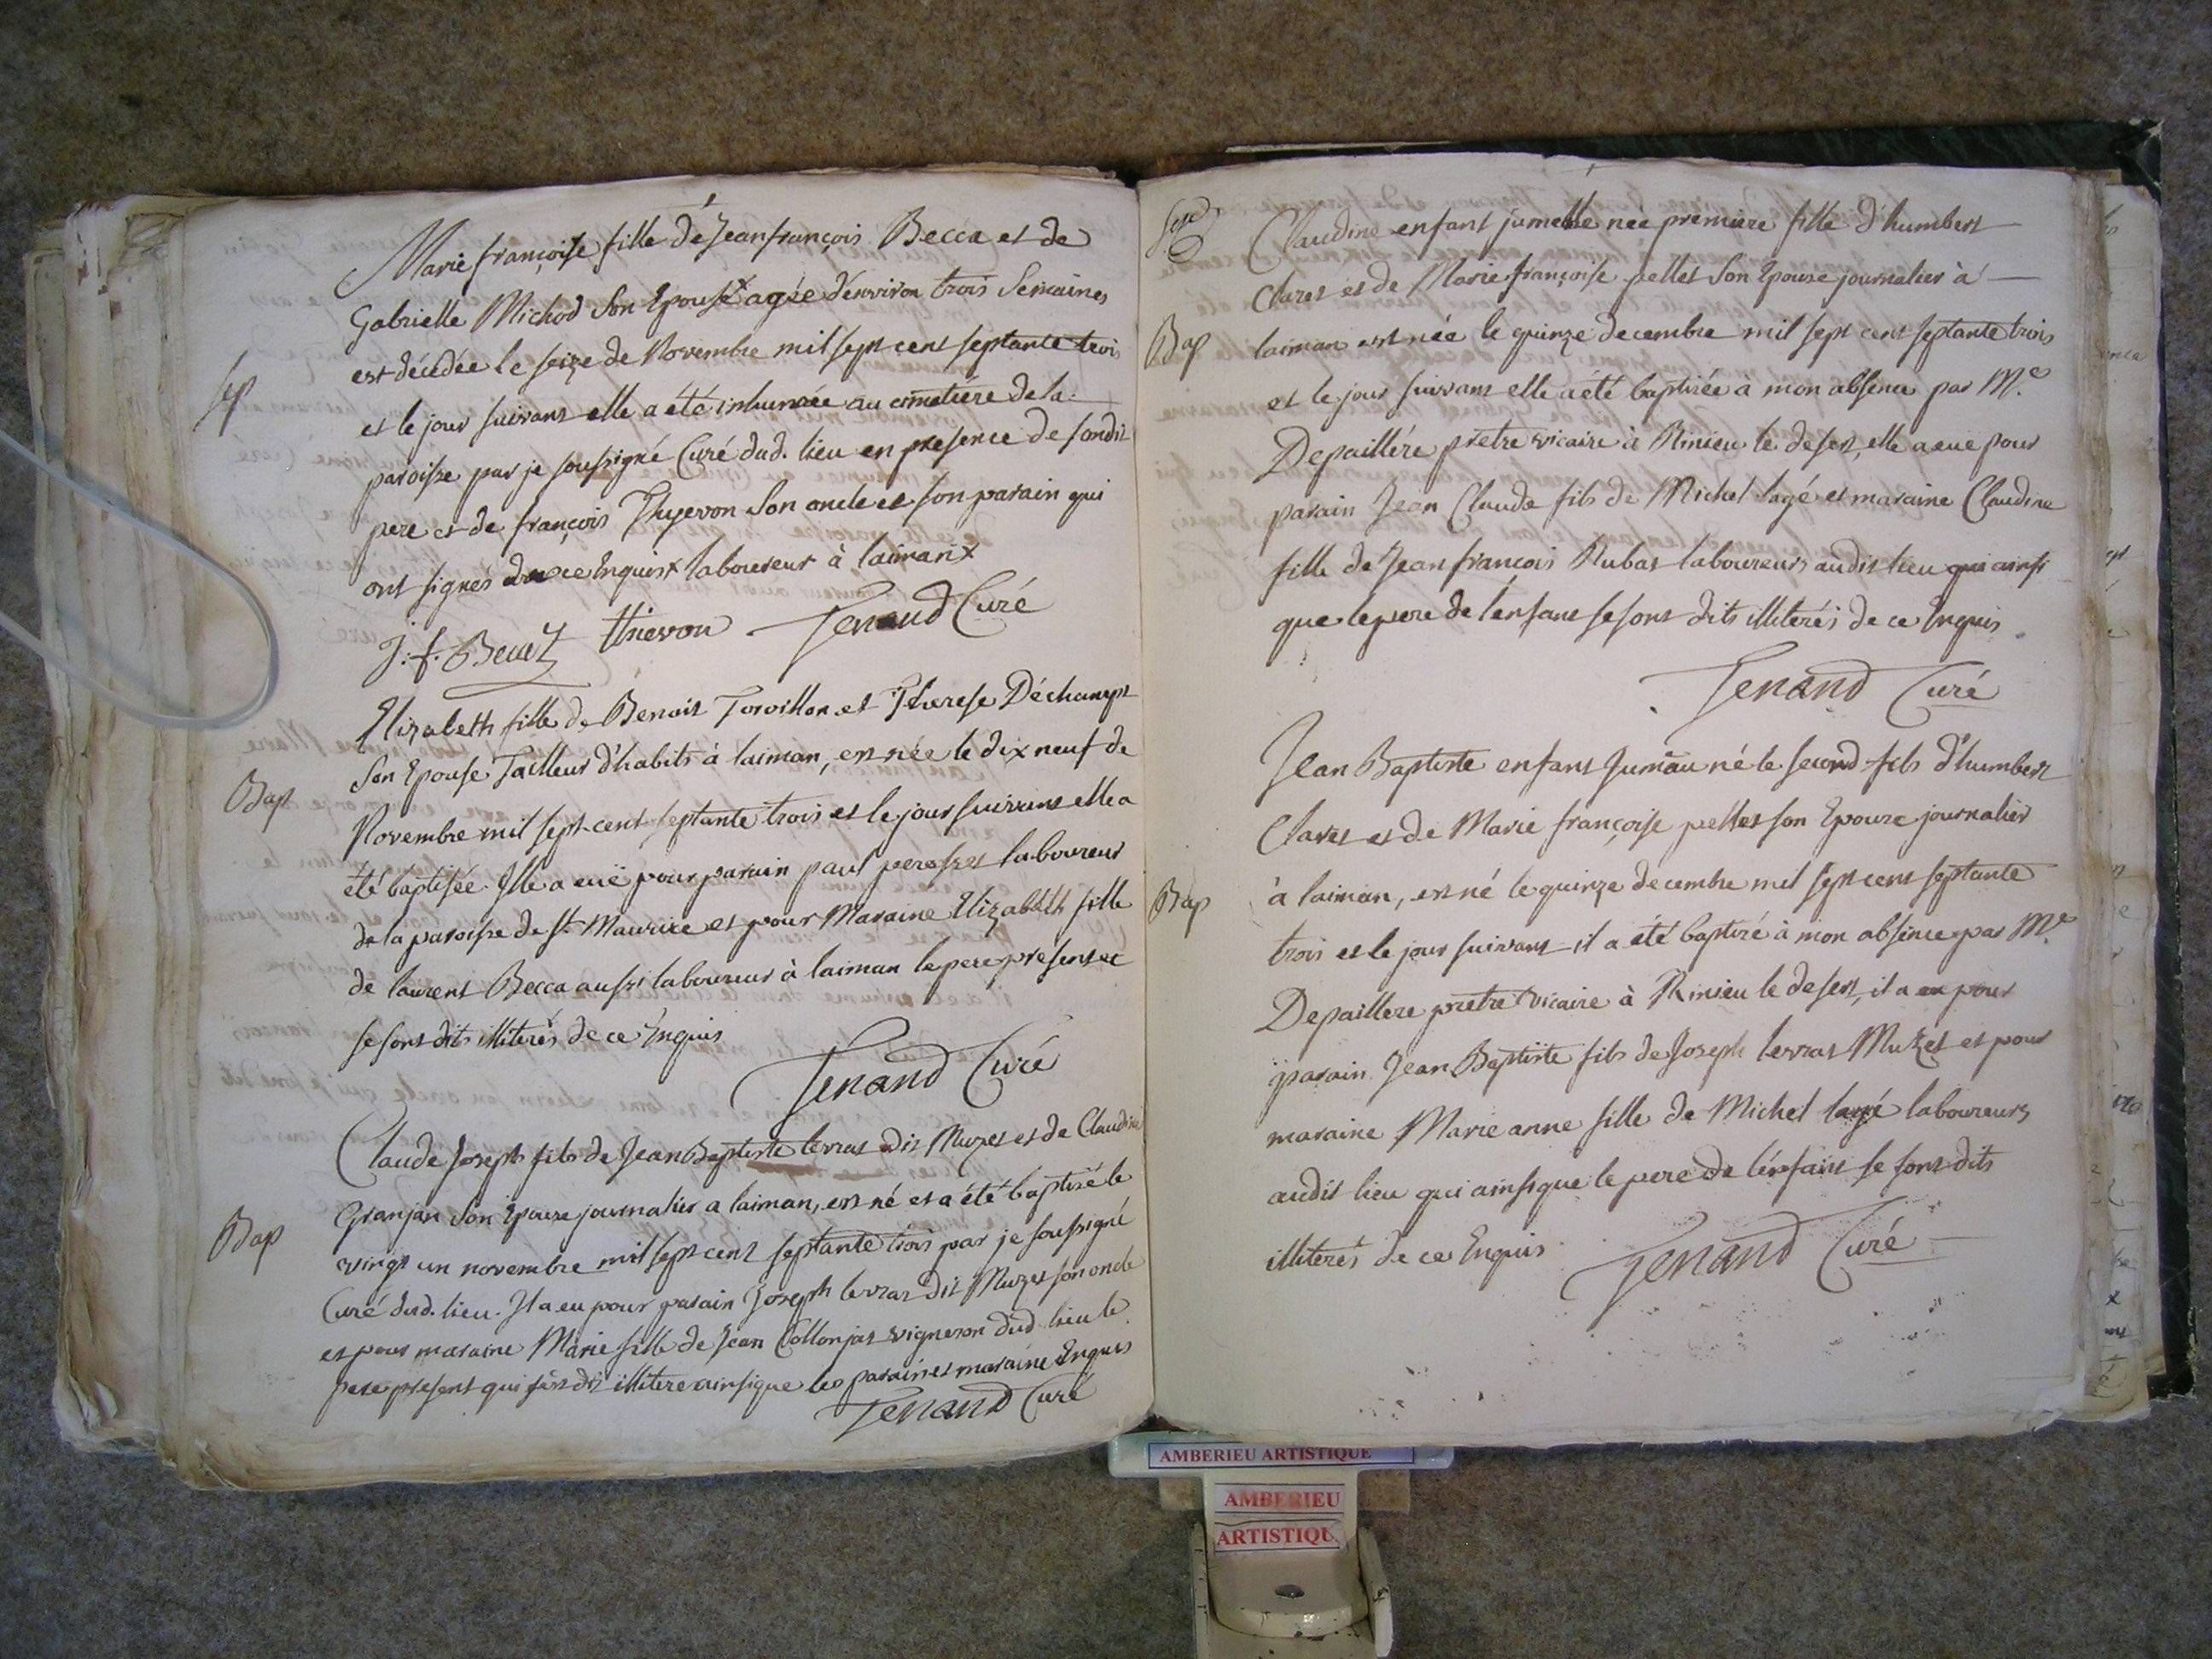 Marie françoise fille de Jean françois Becca et de
Gabrielle Michod son Epouse x agée d'environ trois Semaines
sep
est décédée le seize de Novembre mil sept cent septante trois
et le jour suivant elle a été inhumée au cimetiére de la
paroisse par je soussigné Curé dud. lieu en presence de sondit
pere et de françois Thyevon son oncle et son parain qui
ont signés de ce Enquis x laboureur à laiman x
J. f. Becca thievon Tenand Curé
Elizabeth fille de Benoit Torvillon et Therese Déchamps
Bap
son Epouse Tailleur d'habits à laiman, est née le dix neuf de
Novembre mil sept cent septante trois et le jour suivant elle a
été baptisée. Elle a euë pour parain paul perosset laboureur
de la paroisse de St. Maurice et pour Maraine Elizabeth fille
de laurent Becca aussi laboureur à laiman le pere present et
se sont dits illiterés de ce Enquis
Tenand Curé
Claude Joseph fils de Jean Baptiste levrat dit Muzet et de Claudine
Bap
Granjan son Epouse journalier a laiman, est né et a été baptisé le
vingt un novembre mil sept cent septante trois par je soussigné
Curé dud. lieu. Il a eu pour parain Joseph levrat dit Muzet son oncle
et pour maraine Marie fille de Jean Collonjat vigneron dud. lieu le
pere present qui s'est dit illitere ainsi que les parain et maraine Enquis
Tenand Curé
Claudine enfant jumelle née premiere fille d'humbert
Claret et de Marie françoise pellet son Epouse journalier à
Bap
laiman est née le quinze decembre mil sept cent septante trois
et le jour suivant elle a été baptisée à mon absence par Mre.
Depaillére prêtre vicaire à Rinieu le desert, elle a eue pour
parain Jean Claude fils de Michel lagé et maraine Claudine
fille de Jean françois Rubat laboureurs audit lieu qui ainsi
que le pere de l'enfant se sont dits illiterés de ce Enquis
Tenand Curé
Jean Baptiste enfant Jumau né le second fils d'humbert
Claret et de Marie françoise pellet son Epouse journalier
Bap
à laiman, est né le quinze decembre mil sept cent septante
trois et le jour suivant il a été baptisé à mon absence par Mre.
Depaillere pretre vicaire à Rinieu le desert, il a eu pour
parain Jean Baptiste fils de Joseph levrat Muzet et pour
maraine Marie anne fille de Michel lagé laboureurs
audit lieu qui ainsi que le pere de l'enfant se sont dits
illiterés de ce Enquis
Tenand Curé
AMBERIEU ARTISTIQUE
AMBERIEU
ARTISTIQU